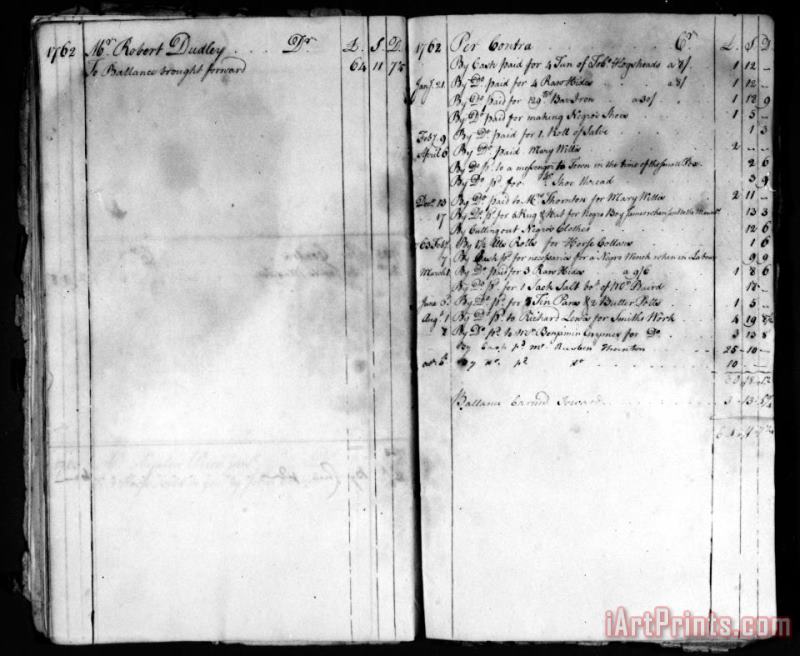 1762 Mr. Robert Dudley . . . Dr. £. S. D.
To Ballance brought forward 64 11 7½
1762 Per Contra . . . Cr. £. S. D.
By Cash paid for 4 Tun of Tob.o Hogsheads a 8/. 1 12 -
Jany. 21 By Do. paid for 4 Raw Hides a 8/ 1 12 -
By Do. paid for 129 lb Bar Iron . a 30/ . 1 18 9
By Do. paid for making Negro's Shoes 1 5 -
Feby. 9 By Do. paid for 1. Roll of Salve . . 1 3
April 6 By Do. paid Mary Willis 2 - -
By Do. pd. to a messenger to Town in the time of the Small Pox . 2 6
By Do. pd. for Shoe thread . 3 9
Decr. 13 By Do. paid to Mr. Thornton for Mary Willis 2 11 -
17 By Do. pd. for a Rug & Hat for Negro Boy James when sent to the 13 3
By Cutting out Negro's Clothes . . 12 6
1763 Feby. By 1½ Ells Rolls for Horse Collars . 1 6
By Cash pd. for necessaries for a Negro Wench when in Labour 9 9
March 1 By Do. paid for 3 Raw Hides a 9/6 1 8 6
By Do. pd. for 1 Sack Salt bot. of Wm. Baird . 18 -
June 6 By Do. pd. for 8 Tin Pans & 2 Butter Potts . 1 5 -
Augt. 1 By Do. pd. to Richard Lewis for Smiths Work 4 19 8½
8 By Do. pd. to Mr. Benjamin for Do. 3 13 8
By Cash pd. Mr. Reuben Thornton 25 - 10 -
By do. pd. do. 10
Ballance Carried Forward 3 - 13 - 5¾
iArtPrints.com